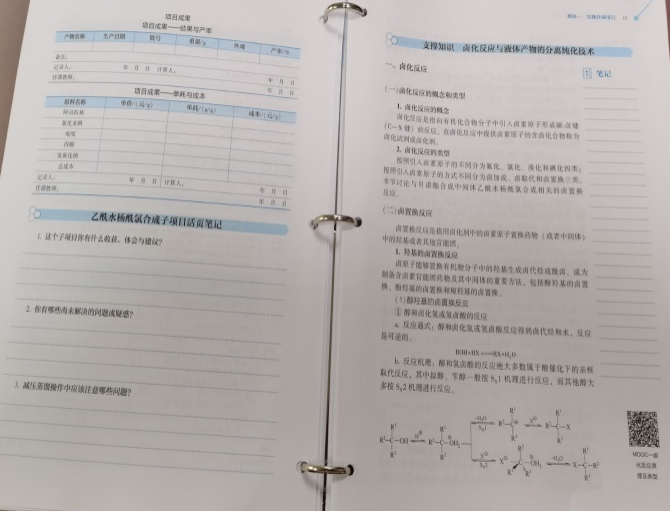 项目成果
项目成果——结果与产率
产物名称 生产日期 批号 重量/g 外观 产率/%
备注:
记录人: 年 月 日 计算人: 年 月 日
任课教师: 年 月 日
项目成果——单耗与成本
原料名称 单价/(元/g) 单耗/(g/g) 成本/(元/g)
阿司匹林
氯化亚砜
吡啶
丙酮
氢氧化钠
总成本
记录人: 年 月 日 计算人: 年 月 日
任课教师: 年 月 日
乙酰水杨酰氯合成子项目活页笔记
1. 这个子项目你有什么收获、体会与建议?
2. 你有哪些尚未解决的问题或疑惑?
3. 减压蒸馏操作中应该注意哪些问题?
支撑知识 卤化反应与液体产物的分离纯化技术
笔记
一、卤化反应
(一)卤化反应的概念和类型
1. 卤化反应的概念
卤化反应是指向有机化合物分子中引入卤素原子形成碳-卤键
(C—X键)的反应。在卤化反应中提供卤素原子的含卤化合物称为
卤化试剂或卤化剂。
2. 卤化反应的类型
按照引入卤素原子的不同分为氟化、氯化、溴化和碘化四类;
按照引入卤素原子的方式不同分为卤加成、卤取代和卤置换三类。
本节讨论与贝诺酯合成中间体乙酰水杨酰氯合成相关的卤置换
反应。
(二)卤置换反应
卤置换反应是指用卤化剂中的卤素原子置换药物(或者中间体)
中的羟基或者其他官能团。
1. 羟基的卤置换反应
卤原子能够置换有机物分子中的羟基生成卤代烃或酰卤,成为
制备含卤素官能团药物及其中间体的重要方法。包括醇羟基的卤置
换、酚羟基的卤置换和羧羟基的卤置换。
(1)醇羟基的卤置换反应
① 醇和卤化氢或氢卤酸的反应
a. 反应通式:醇和卤化氢或氢卤酸反应得到卤代烃和水。反应
是可逆的。
ROH+HX⇌RX+H₂O
b. 反应机理:醇和氢卤酸的反应绝大多数属于酸催化下的亲核
取代反应。其中叔醇、苄醇一般按 SN1 机理进行反应,而其他醇大
多按 SN2 机理进行反应。
MOOC—卤
化反应原
理及类型